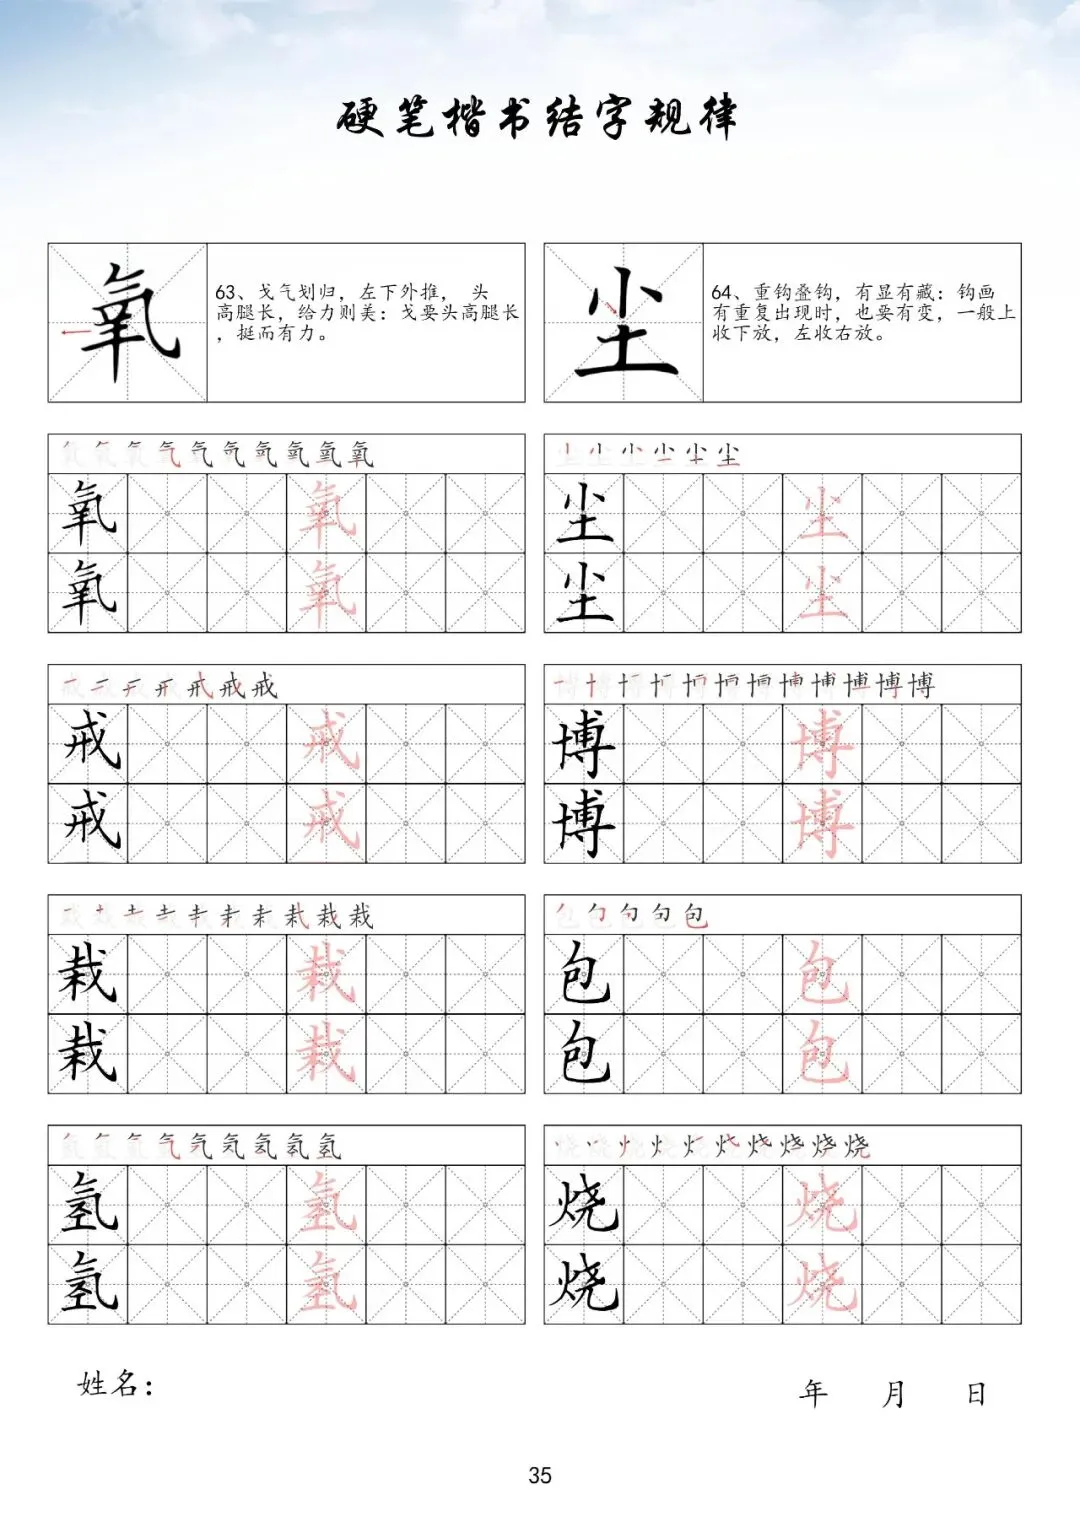 硬笔楷书结字规律
氧
63、戈气划归，左下外推， 头
高腿长，给力则美：戈要头高腿长
，挺而有力。
尘
64、重钩叠钩，有显有藏：钩画
有重复出现时，也要有变，一般上
收下放，左收右放。
氧 氧
氧 氧
尘 尘
尘 尘
戒 戒
戒 戒
博 博
博 博
栽 栽
栽 栽
包 包
包 包
氢 氢
氢 氢
烧 烧
烧 烧
姓名：
年 月 日
35